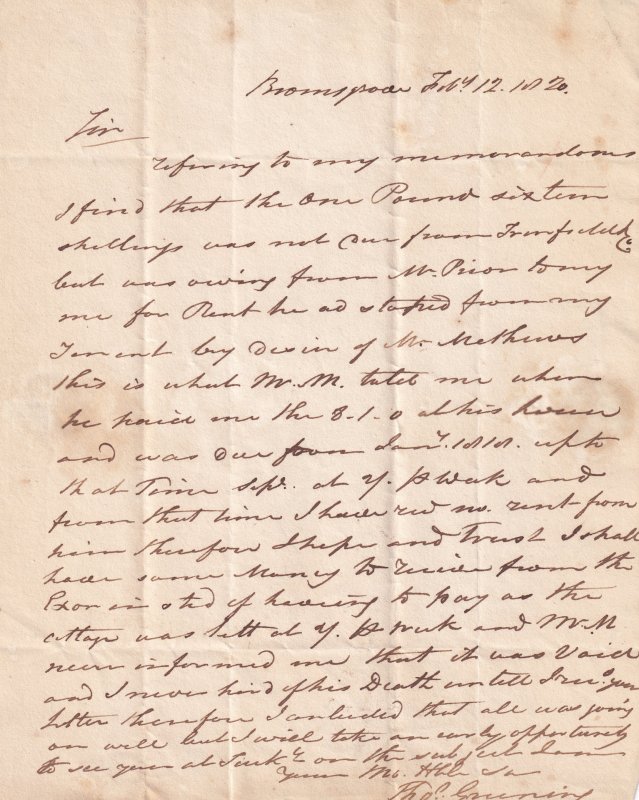 Bromsgrove Feby. 12. 1820.
Sir
refering to my memorandoms
I find that the One Pound sixteen
shellings was not Due from
but was owing from Mr Prior to my
me for Rent he ad stoped from my
Tenent by Desire of Mr. Mathews
this is what Mr. M. me when
he paid me the 3-1-0 at his house
and was Due from Jany. 1818. up to
that Time Sepr. at 2/. pr Week and
from that time I have recd no. rent from
him therefore I hope and Trust I shall
have some Money to recieve from the
Exor in sted of haveing to pay as the
cottage was lett at 2/. pr Week and Mr. M
never informed me that it was Void
and I never hird of his Death untell I recd. your
letter therefore I that all was going
on well but I will take an early opportunity
to see you at on the subject I am
your Mo. Hble Sr
Thos. Greening